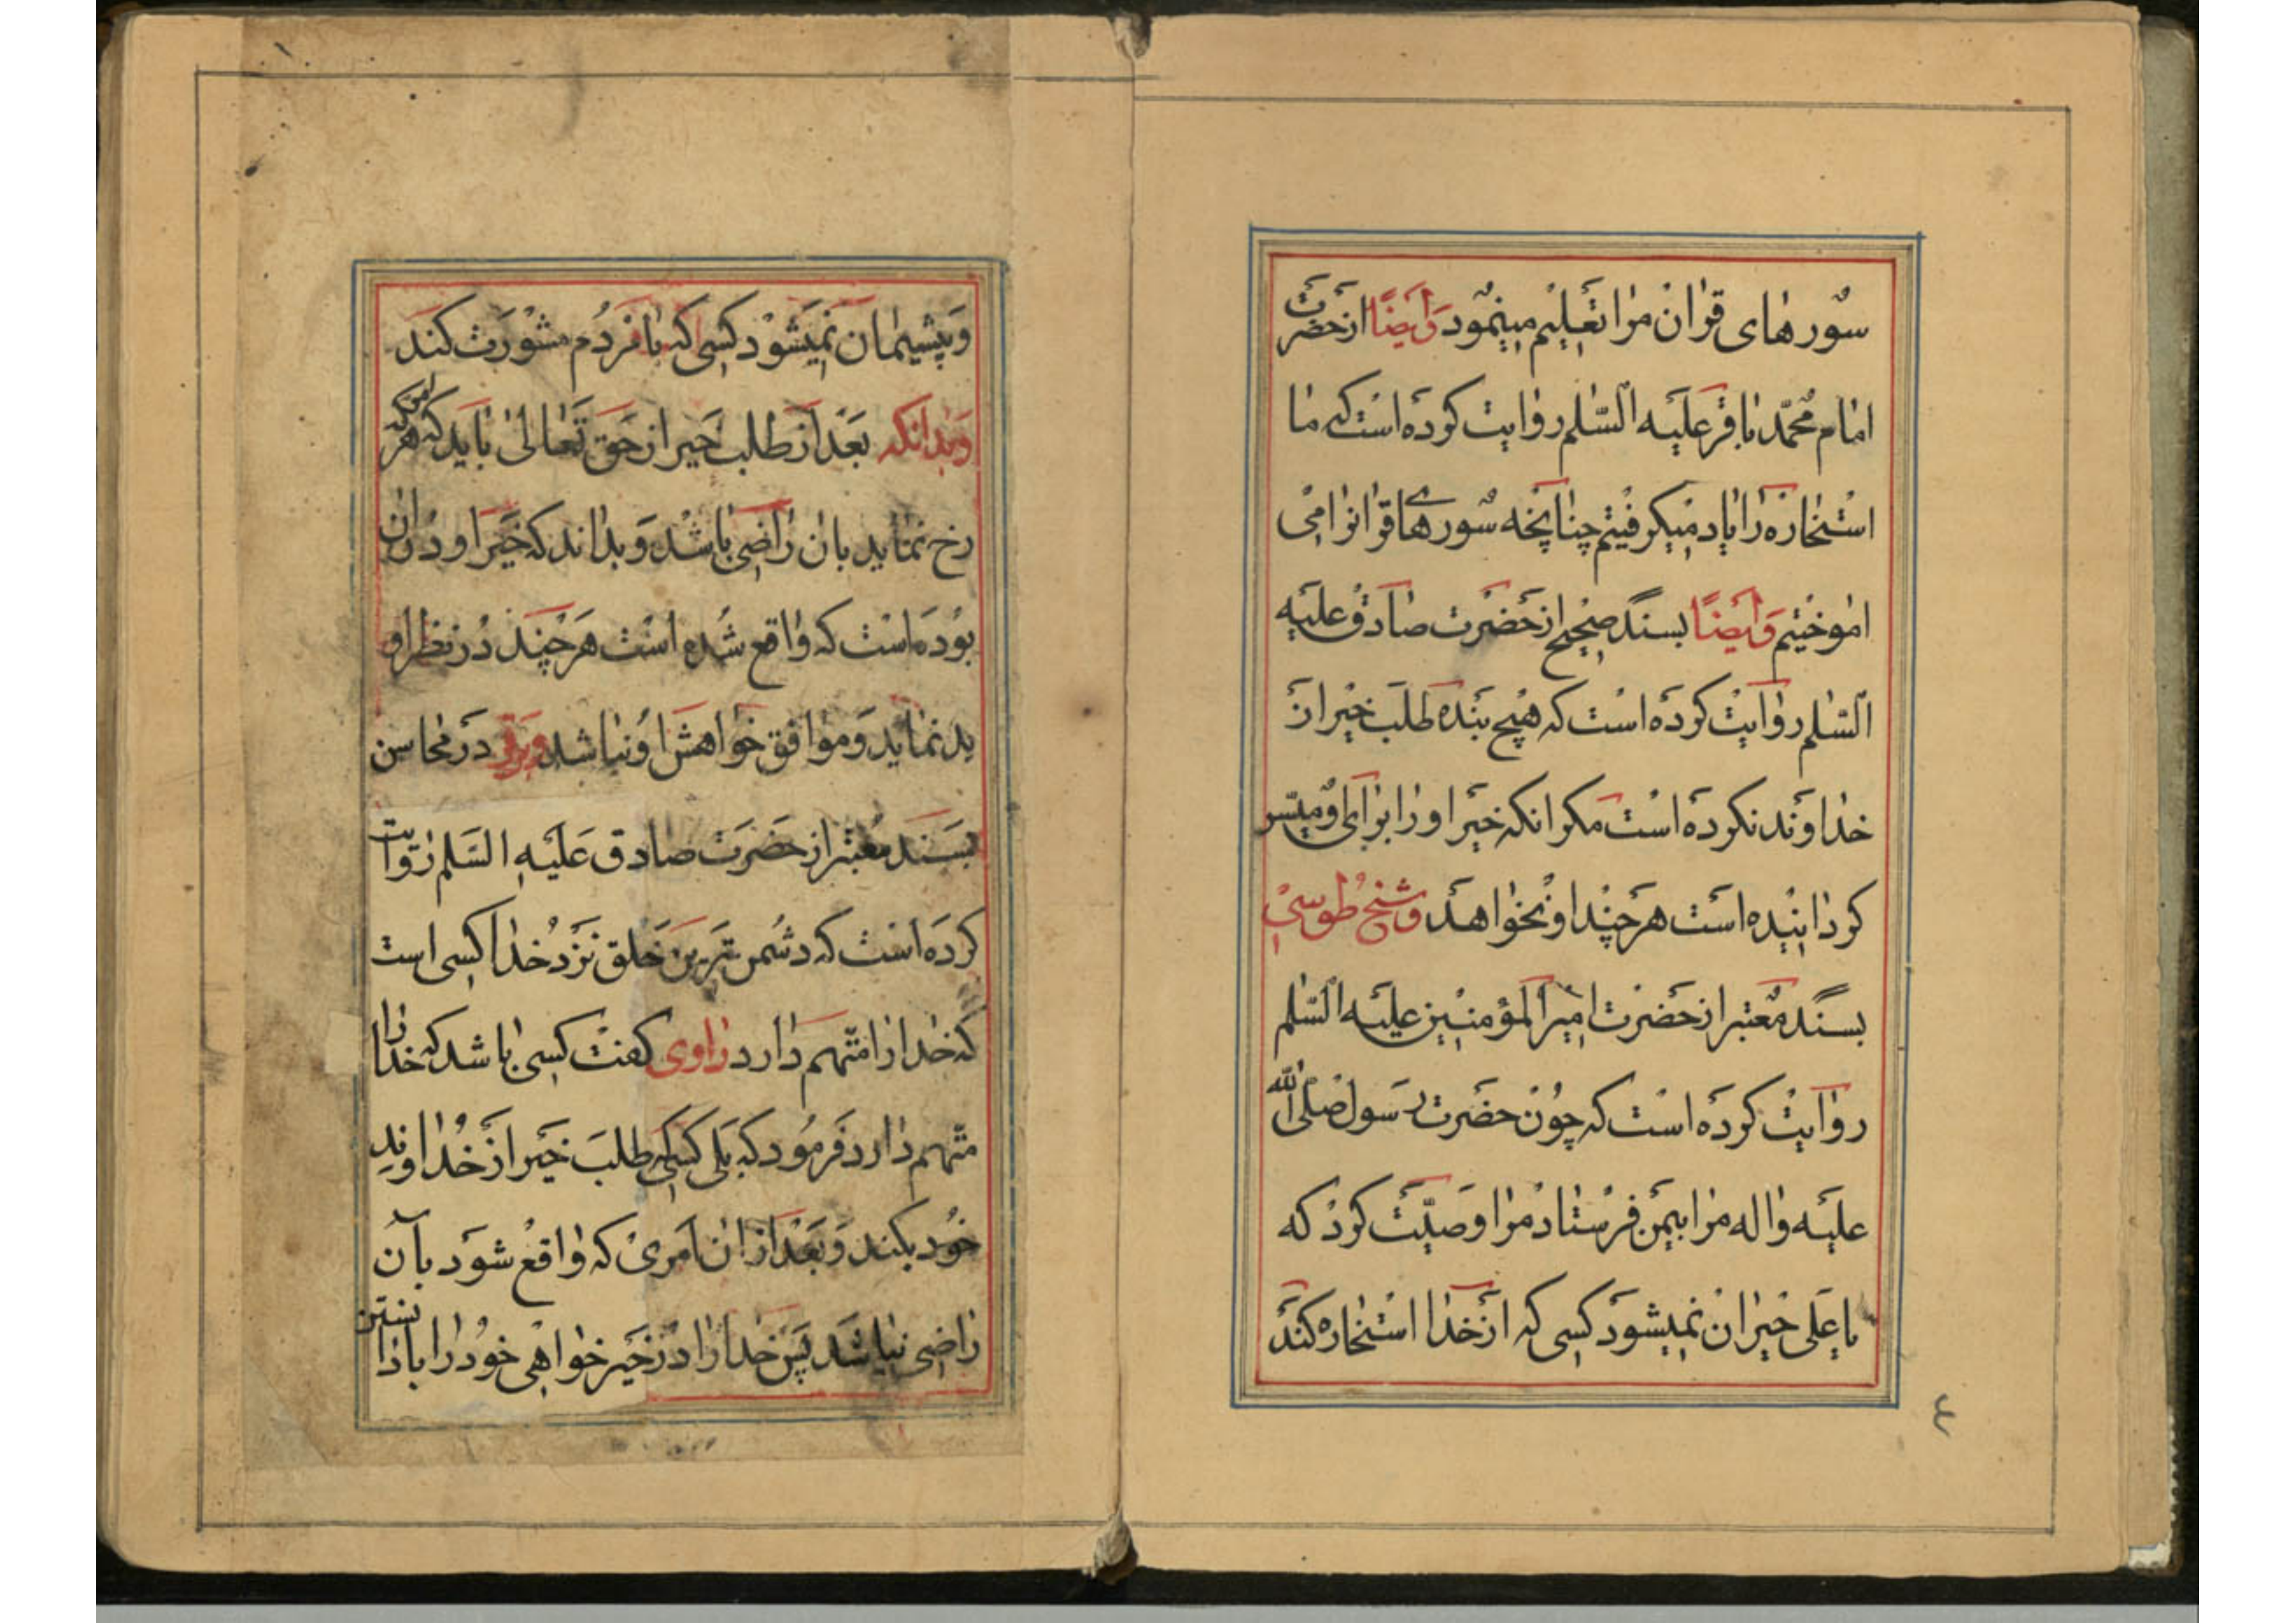 سورهای قران مرا تعلیم مینمود وایضًا از حضرت
امام محمّد باقر علیه السّلم روایت کرده است که ما
استخاره را یاد میکرفتیم چنانچه سورهای قرانرا می
اموختیم وایضًا بسند صحیح از حضرت صادق علیه
السّلم روایت کرده است که هیچ بنده طلب خیر از
خداوند نکرده است مکر انکه خیر او را برای او میسّر
کرداینده است هرچند او نخواهد وشیخ طوسی
بسند معتبر از حضرت امیر المؤمنین علیه السّلم
روایت کرده است که چون حضرت رسول صلی الله
علیه واله مرا بیمن فرستاد مرا وصیّت کرد که
یا علی حیران نمیشود کسی که از خدا استخاره کند
٤
وپشیمان نمیشود کسی که با مردم مشورت کند
وبدانکه بعد از طلب خیر از حق تعالی باید که هر امر که
رخ نماید بان راضی باشد وبداند که خیر او در ان
بوده است که واقع شده است هرچند در نظر او
بد نماید وموافق خواهش او نباشد وبرقی در محاسن
بسند معتبر از حضرت صادق علیه السلم روایت
کرده است که دشمن ترین خلق نزد خدا کسی است
که خدا را متّهم دارد راوی کفت کسی باشد که خدا را
متّهم دارد فرمود که بلی کسی که طلب خیر از خداوند
خود بکند وبعد از ان امری که واقع شود بآن
راضی نباشد پس خدا را در خیر خواهی خود را با